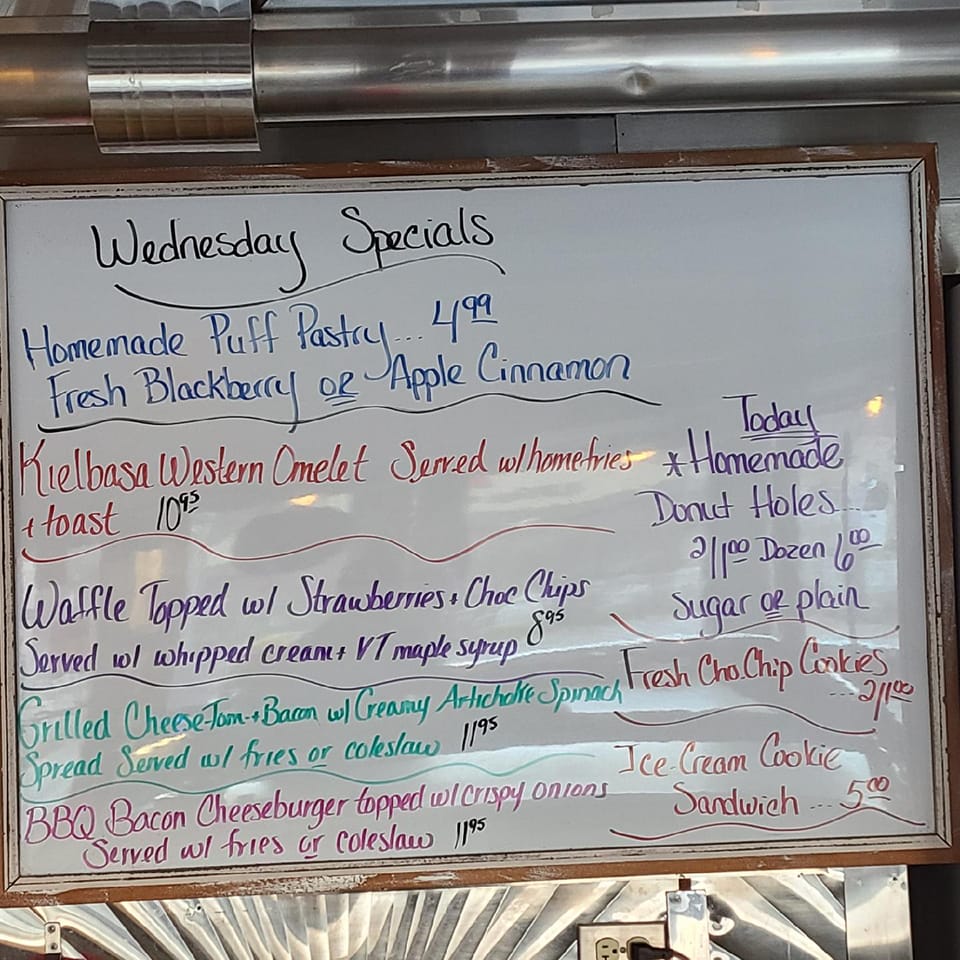 Wednesday Specials
Homemade Puff Pastry... 4.99
Fresh Blackberry or Apple Cinnamon
Kielbasa Western Omelet Served w/homefries
+ toast 10.95
Waffle Topped w/ Strawberries + Choc Chips
Served w/ whipped cream + VT maple syrup 8.95
Grilled Cheese-Tom-+Bacon w/ Creamy Artichoke Spinach
Spread Served w/ fries or coleslaw 11.95
BBQ Bacon Cheeseburger topped w/crispy onions
Served w/ fries or coleslaw 11.95
Today
*Homemade
Donut Holes...
2/1.00 Dozen 6.00
Sugar or plain
Fresh Cho.Chip Cookies
... 2/1.00
Ice-Cream Cookie
Sandwich ... 5.00